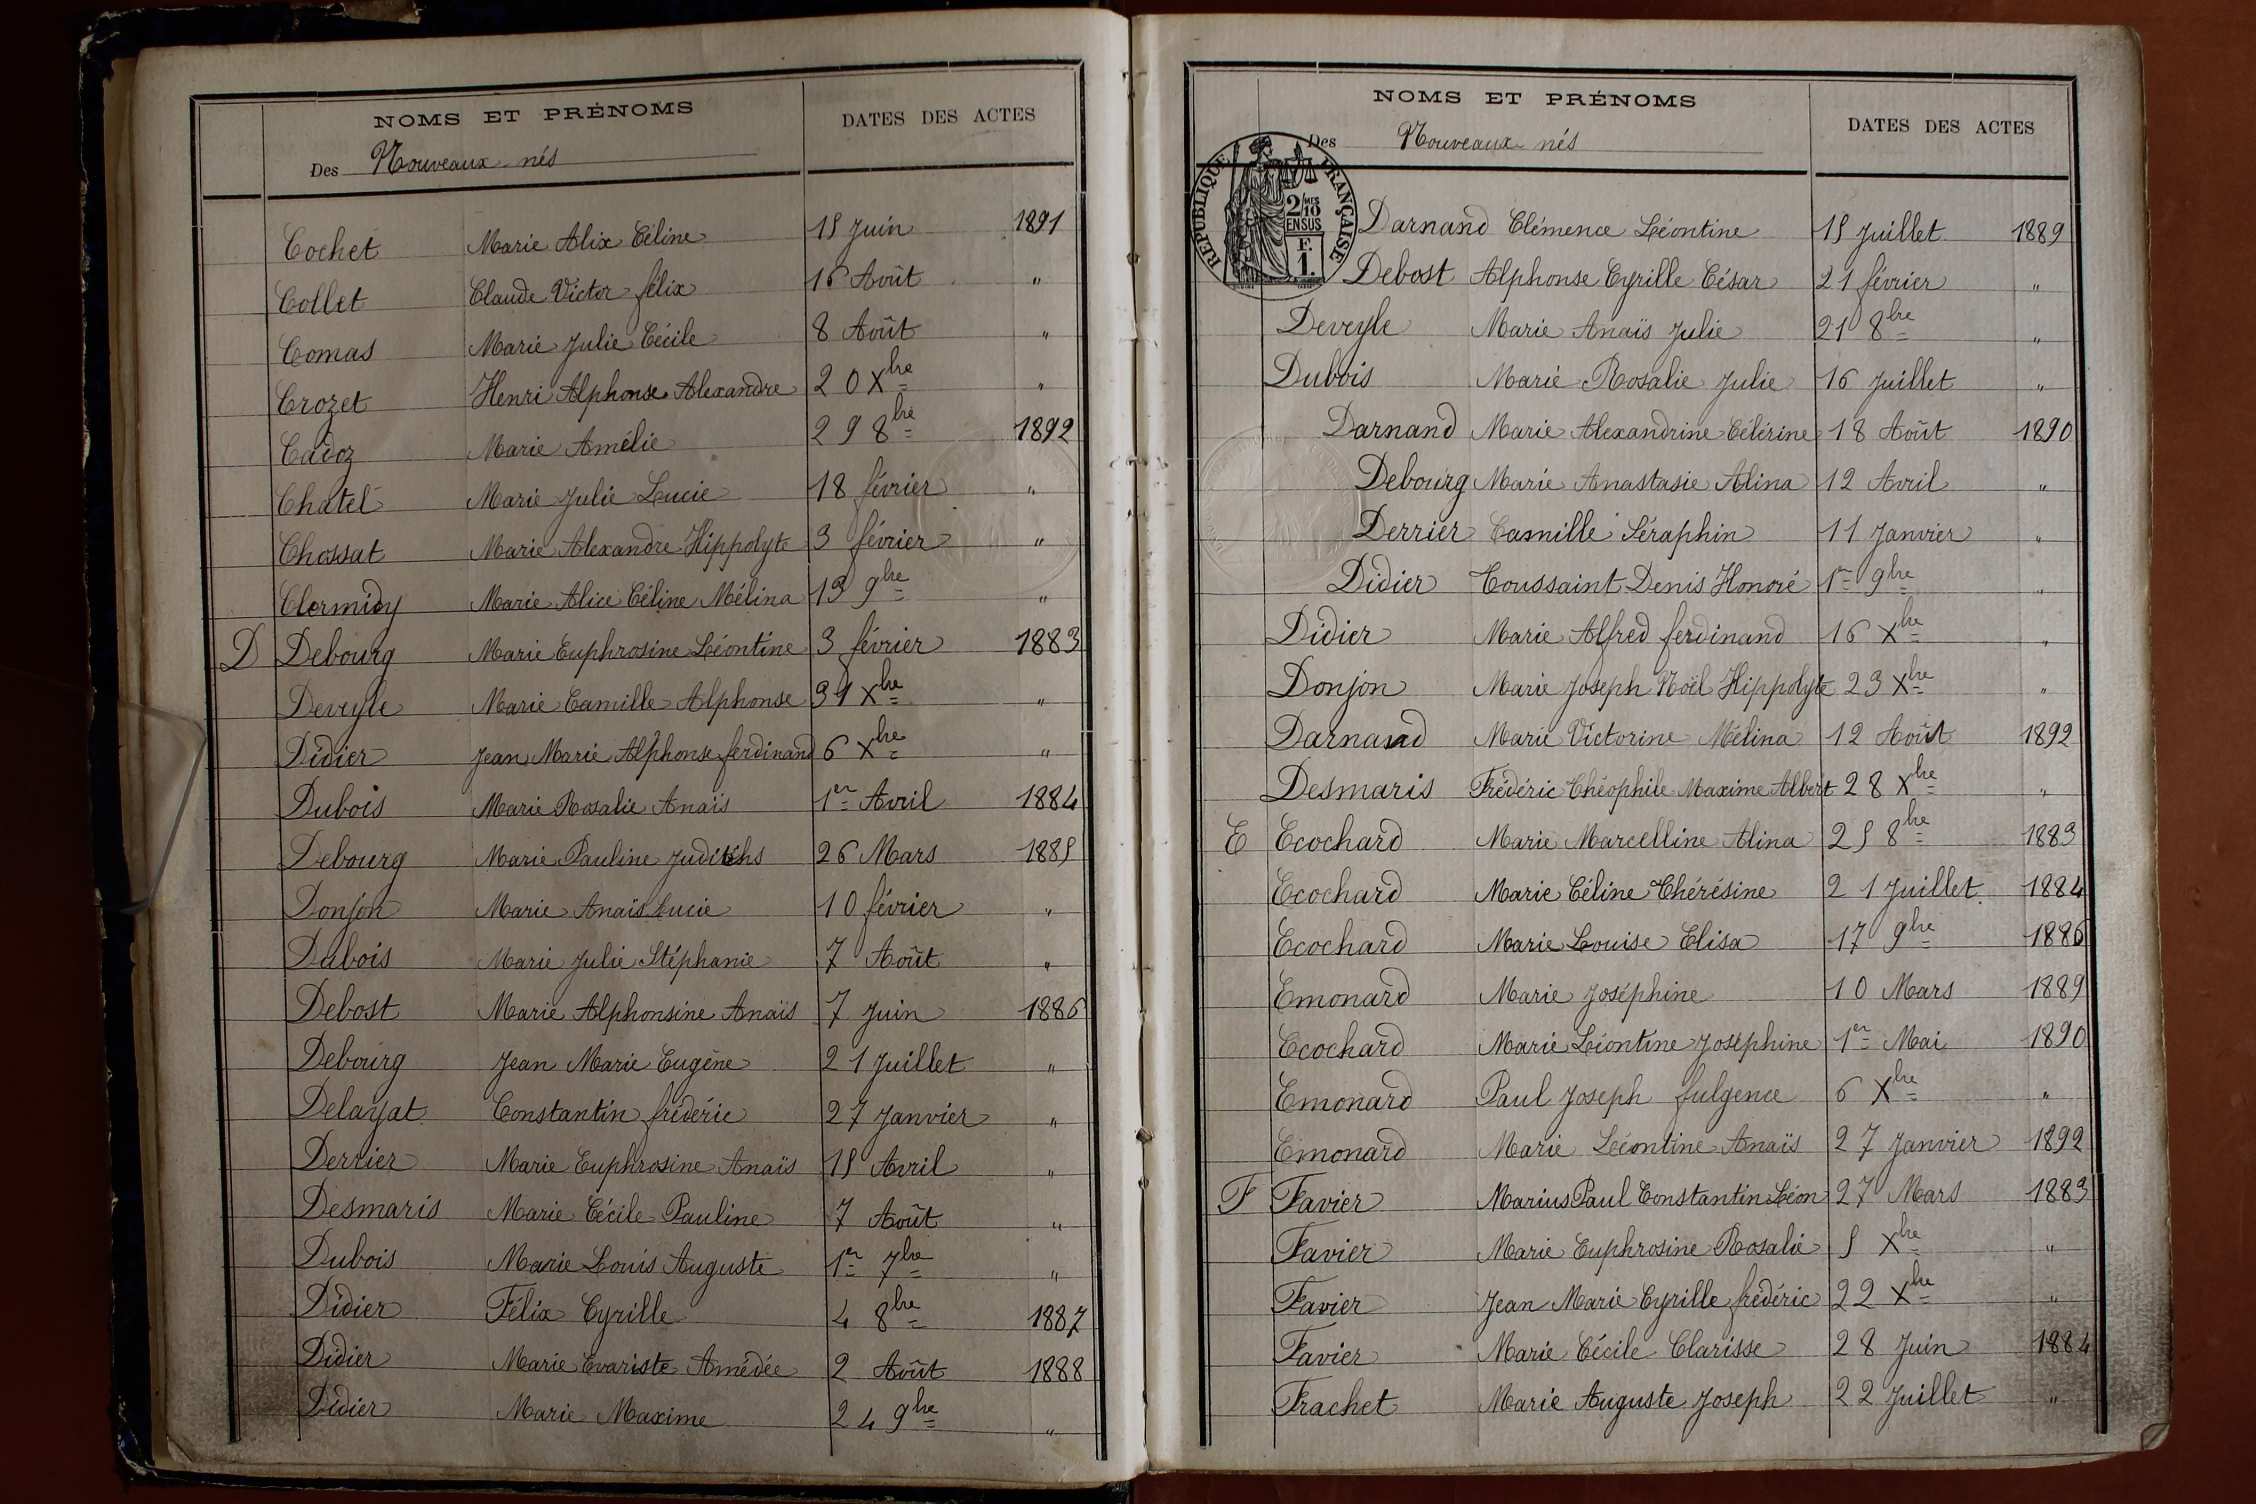 NOMS ET PRÉNOMS DATES DES ACTES
Des Nouveaux-nés
Cochet Marie Alix Céline 15 Juin 1891
Collet Claude Victor félix 16 Août "
Comas Marie Julie Cécile 8 Août "
Crozet Henri Alphonse Alexandre 20 Xbre "
Cadoz Marie Amélie 29 8bre 1892
Chatel Marie Julie Lucie 18 février "
Chossat Marie Alexandre Hippolyte 3 février "
Clermidy Marie Alice Céline Mélina 13 9bre "
D Debourg Marie Euphrosine Léontine 3 février 1883
Deveyle Marie Camille Alphonse 31 Xbre "
Didier Jean Marie Alphonse ferdinand 6 Xbre "
Dubois Marie Rosalie Anaïs 1er Avril 1884
Debourg Marie Pauline Judiths 26 Mars 1885
Donjon Marie Anaïs Lucie 10 février "
Dubois Marie Julie Stéphanie 7 Août "
Debost Marie Alphonsine Anaïs 7 Juin 1886
Debourg Jean Marie Eugène 21 Juillet "
Delayat Constantin frédéric 27 Janvier "
Derrier Marie Euphrosine Anaïs 15 Avril "
Desmaris Marie Cécile Pauline 7 Août "
Dubois Marie Louis Auguste 1er 7bre "
Didier Félix Cyrille 4 8bre 1887
Didier Marie Evariste Amédée 2 Août 1888
Didier Marie Maxime 24 9bre "
NOMS ET PRÉNOMS DATES DES ACTES
Des Nouveaux-nés
REPUBLIQUE FRANÇAISE
2/10 MES
EN SUS
F.
1.
Darnand Clémence Léontine 15 Juillet 1889
Debost Alphonse Cyrille César 21 février "
Deveyle Marie Anaïs Julie 21 8bre "
Dubois Marie Rosalie Julie 16 Juillet "
Darnand Marie Alexandrine Célérine 18 Août 1890
Debourg Marie Anastasie Alina 12 Avril "
Derrier Camille Séraphin 11 Janvier "
Didier Toussaint Denis Honoré 1er 9bre "
Didier Marie Alfred ferdinand 16 Xbre "
Donjon Marie Joseph Noël Hippolyte 23 Xbre "
Darnand Marie Victorine Mélina 12 Août 1892
Desmaris Frédéric Théophile Maxime Albert 28 Xbre "
E Ecochard Marie Marcelline Alina 25 8bre 1883
Ecochard Marie Céline Thérésine 21 Juillet 1884
Ecochard Marie Louise Elisa 17 9bre 1886
Emonard Marie Joséphine 10 Mars 1889
Ecochard Marie Léontine Joséphine 1er Mai 1890
Emonard Paul Joseph fulgence 6 Xbre "
Emonard Marie Léontine Anaïs 27 Janvier 1892
F Favier Marius Paul Constantin Léon 27 Mars 1883
Favier Marie Euphrosine Rosalie 5 Xbre "
Favier Jean Marie Cyrille frédéric 22 Xbre "
Favier Marie Cécile Clarisse 28 Juin 1884
Frachet Marie Auguste Joseph 22 Juillet "